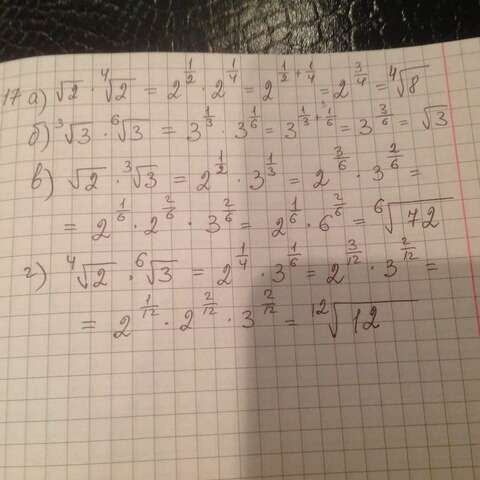 17 а) √2 · ⁴√2 = 2^(1/2) · 2^(1/4) = 2^(1/2 + 1/4) = 2^(3/4) = ⁴√8
б) ³√3 · ⁶√3 = 3^(1/3) · 3^(1/6) = 3^(1/3 + 1/6) = 3^(3/6) = √3
в) √2 · ³√3 = 2^(1/2) · 3^(1/3) = 2^(3/6) · 3^(2/6) =
= 2^(1/6) · 2^(2/6) · 3^(2/6) = 2^(1/6) · 6^(2/6) = ⁶√72
г) ⁴√2 · ⁶√3 = 2^(1/4) · 3^(1/6) = 2^(3/12) · 3^(2/12) =
= 2^(1/12) · 2^(2/12) · 3^(2/12) = ¹²√12